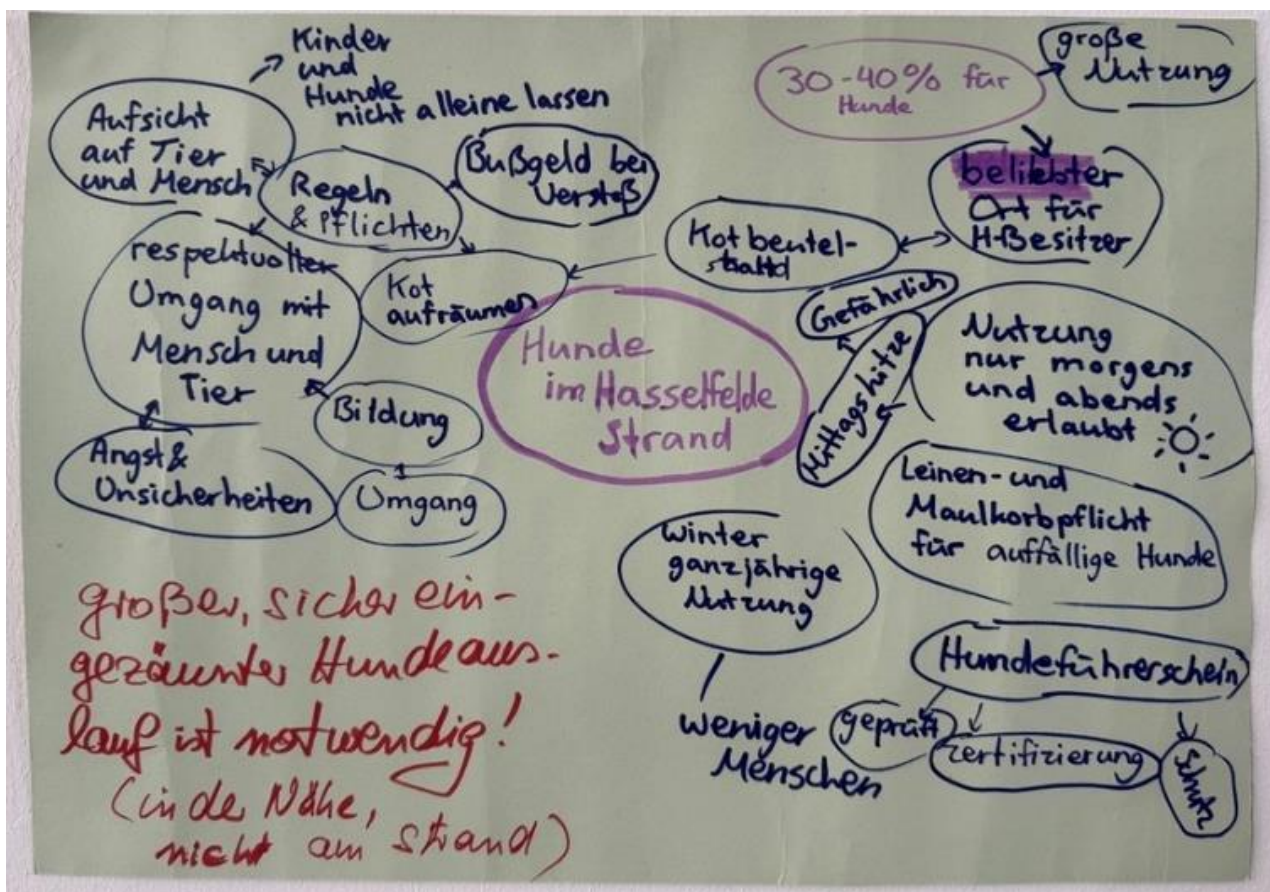 Kinder
und
Hunde
nicht alleine lassen
Aufsicht
auf Tier
und Mensch
Regeln
& Pflichten
Bußgeld bei
Verstoß
respektvoller
Umgang mit
Mensch und
Tier
Kot
aufräumen
Bildung
Umgang
Angst &
Unsicherheiten
30-40% für
Hunde
große
Nutzung
beliebter
Ort für
H-Besitzer
Kotbeutel-
Gefährlich
Mittagshitze
Nutzung
nur morgens
und abends
erlaubt
Hunde
im Hasselfelde
Strand
Leinen- und
Maulkorbpflicht
für auffällige Hunde
Winter
ganzjährige
Nutzung
weniger
Menschen
Hundeführerschein
geprüft
Zertifizierung
Schutz
großer, sicher ein-
gezäunter Hundeaus-
lauf ist notwendig!
(in der Nähe,
nicht am Strand)